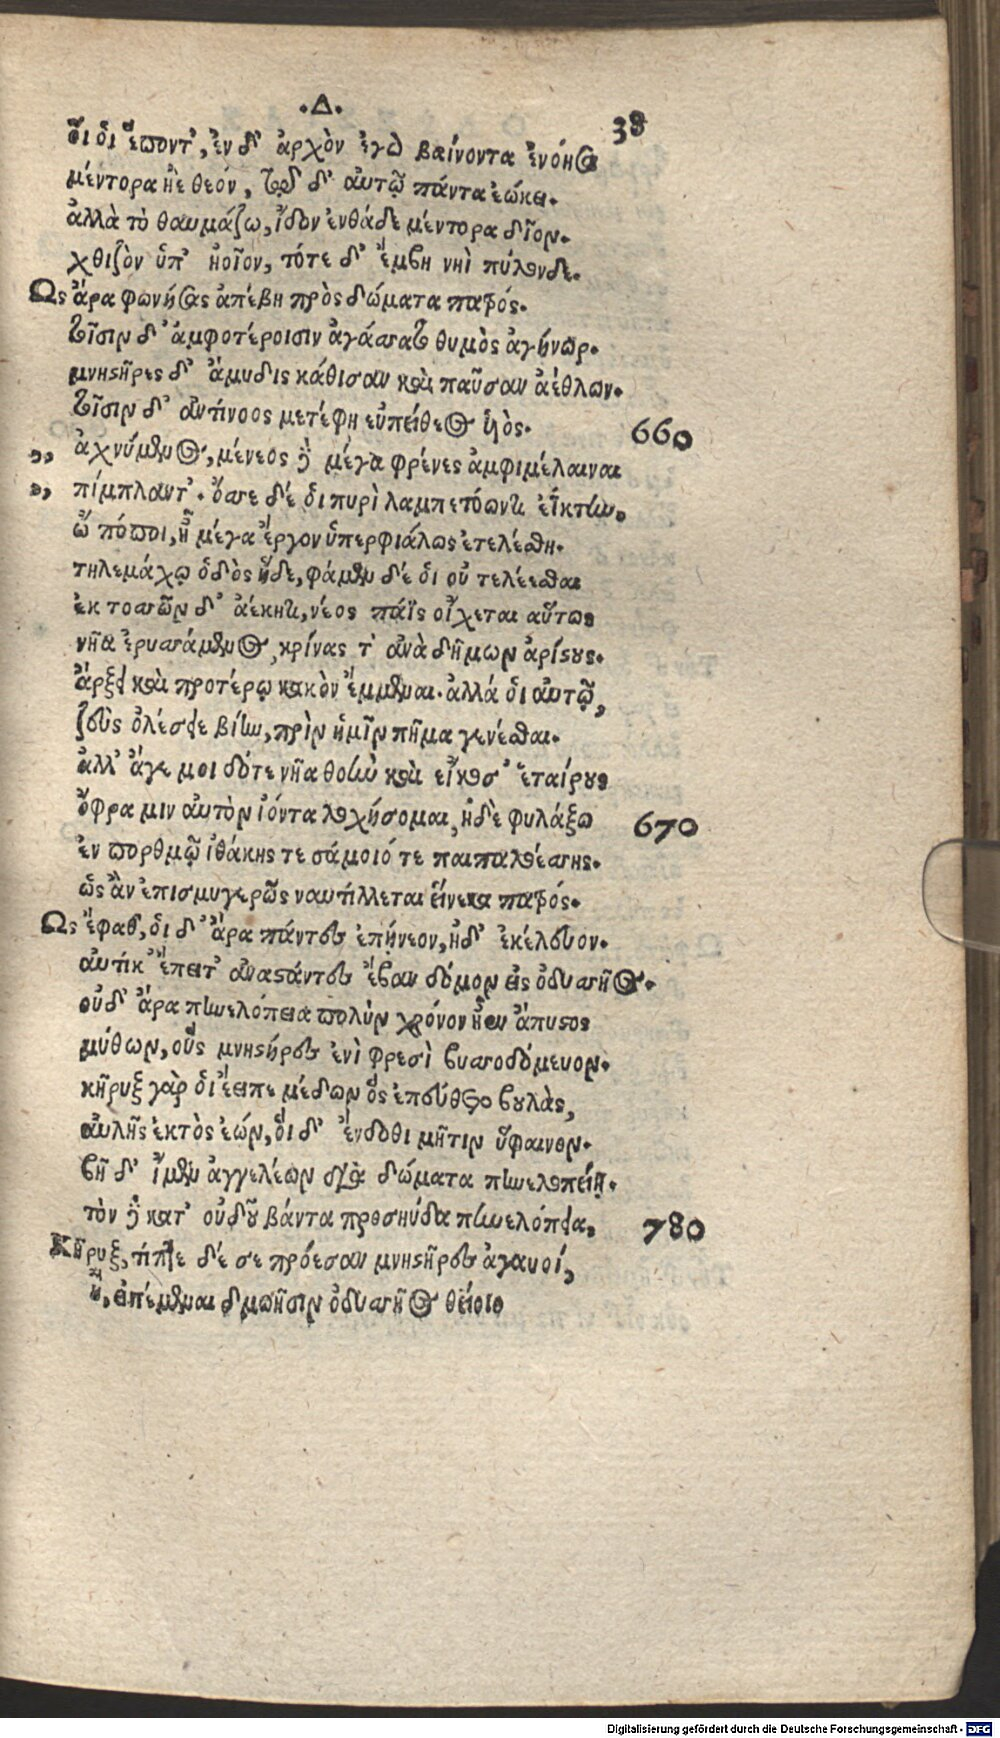 .Δ.
38
οἵ οἱ ἕποντ', ἐν δ' ἀρχὸν ἐγὼ βαίνοντα ἐνόησα
μέντορα ἠὲ θεόν, τῷ δ' αὐτῷ πάντα ἐῴκει.
ἀλλὰ τὸ θαυμάζω, ἴδον ἐνθάδε μέντορα δῖον.
χθιζὸν ὑπ' ἠοῖον, τότε δ' ἔμβη νηὶ πύλονδε.
Ως ἄρα φωνήσας ἀπέβη πρὸς δώματα πατρός.
τοῖσιν δ' ἀμφοτέροισιν ἀγάσσατο θυμὸς ἀγήνωρ.
μνηστῆρες δ' ἄμυδις κάθισαν καὶ παῦσαν ἀέθλων.
τοῖσιν δ' ἀντίνοος μετέφη εὐπείθεος υἱὸς.
660
,, ἀχνύμενος, μένεος δὲ μέγα φρένες ἀμφιμέλαιναι
,, πίμπλαντ'. ὄσσε δέ οἱ πυρὶ λαμπετόωντι ἐΐκτην.
ὢ πόποι, ἦ μέγα ἔργον ὑπερφιάλως ἐτελέσθη.
τηλεμάχῳ ὁδὸς ἥδε, φάμεν δέ οἱ οὐ τελέεσθαι
ἐκ τοσσῶν δ' ἀέκητι, νέος πάϊς οἴχεται αὔτως
νῆα ἐρυσσάμενος, κρίνας τ' ἀνὰ δῆμων ἀρίστους.
ἄρξει καὶ προτέρω κακὸν ἔμμεναι. ἀλλά οἱ αὐτῷ,
ζεὺς ὀλέσειε βίην, πρὶν ἡμῖν πῆμα γενέσθαι.
ἀλλ' ἄγε μοι δότε νῆα θοὴν καὶ εἴκοσ' ἑταίρους
ὄφρα μιν αὐτὸν ἰόντα λοχήσομαι, ἠδὲ φυλάξω
670
ἐν πορθμῷ ἰθάκης τε σάμοιό τε παιπαλοέσσης.
ὡς ἂν ἐπισμυγερῶς ναυτίλλεται εἵνεκα πατρός.
Ως ἔφατ', οἱ δ' ἄρα πάντες ἐπήνεον, ἠδ' ἐκέλευον.
αὐτίκ' ἔπειτ' ἀναστάντες ἔβαν δόμον εἰς ὀδυσσῆος.
οὐδ' ἄρα πηνελόπεια πολὺν χρόνον ἦεν ἄπυστος
μύθων, οὓς μνηστῆρες ἐνὶ φρεσὶ βυσσοδόμευον.
κῆρυξ γὰρ οἱ ἔειπε μέδων ὃς ἐπεύθετο βουλὰς,
αὐλῆς ἐκτὸς ἐών, οἳ δ' ἔνδοθι μῆτιν ὕφαινον.
βῆ δ' ἴμεν ἀγγελέων διὰ δώματα πηνελοπείῃ.
τὸν δὲ κατ' οὐδοῦ βάντα προσηύδα πηνελόπεια,
780
Κῆρυξ, τίπτε δέ σε πρόεσαν μνηστῆρες ἀγαυοί,
ἢ, εἰπέμεναι δμωῇσιν ὀδυσσῆος θείοιο
Digitalisierung gefördert durch die Deutsche Forschungsgemeinschaft - DFG